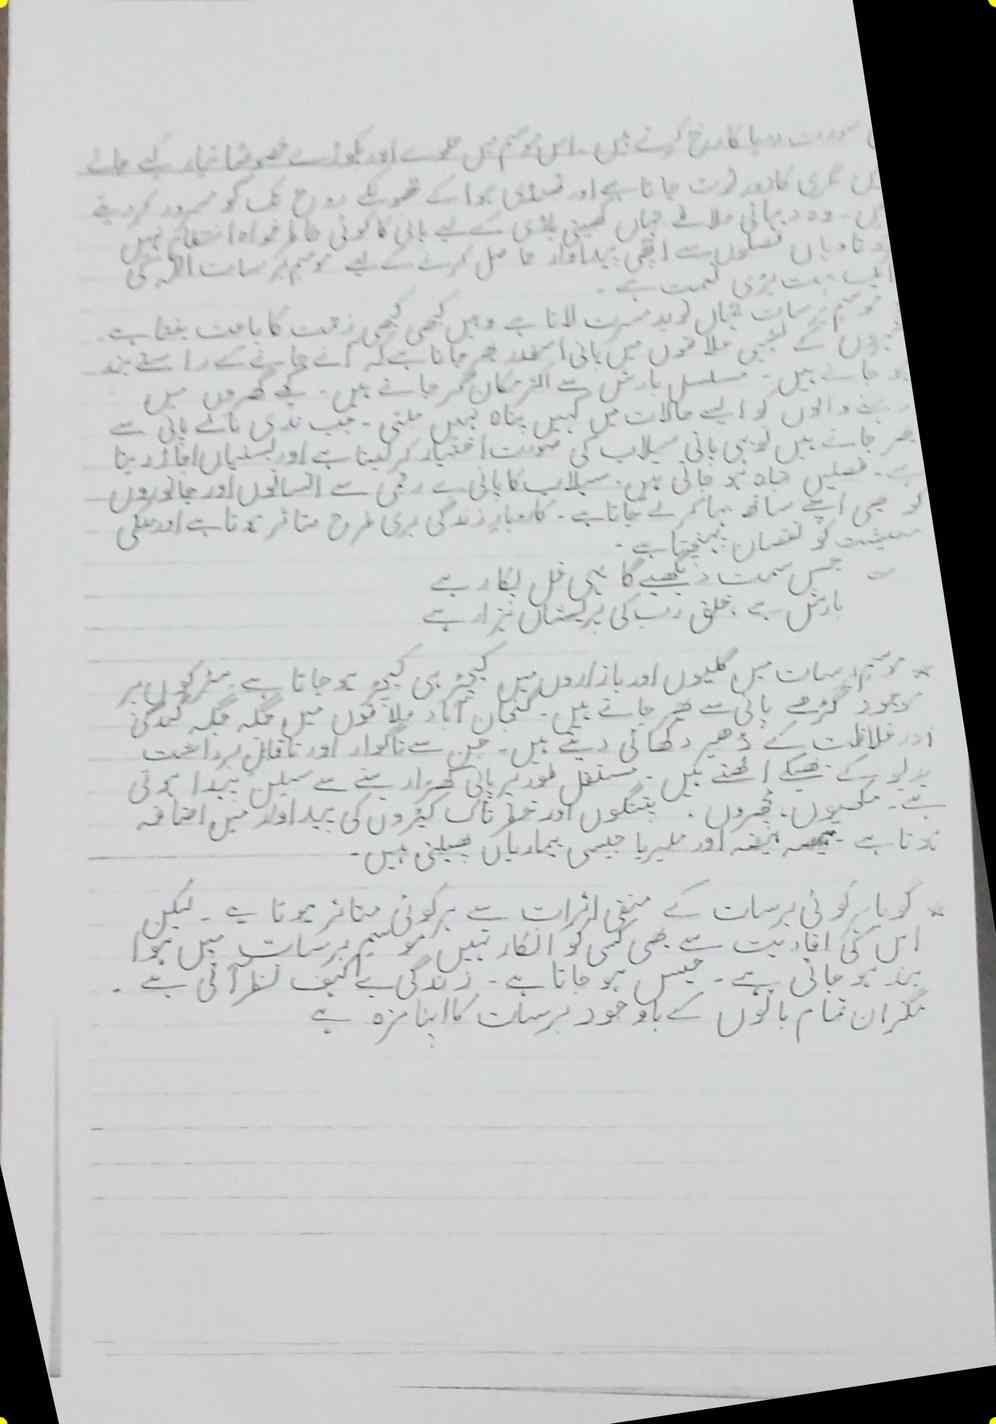 صورت دریا کا رخ کرتے ہیں۔ اس موسم میں حلوے اور پکوڑے خصوصاً تیار کیے جاتے
ہیں گرمی کا زور ٹوٹ جاتا ہے اور ٹھنڈی ہوا کے جھونکے روح تک کو مسرور کر دیتے
ہیں۔ وہ دیہاتی علاقے جہاں کھیتی باڑی کے لیے پانی کا کوئی خاطر خواہ انتظام نہیں
ہوتا وہاں فصلوں سے اچھی پیداوار حاصل کرنے کے لیے موسم برسات اللہ کی
ایک بہت بڑی نعمت ہے۔
موسم برسات جہاں نوید مسرت لاتا ہے وہیں کبھی کبھی زحمت کا باعث بنتا ہے۔
شہروں کے نشیبی علاقوں میں پانی اسقدر بھر جاتا ہے کہ آنے جانے کے راستے بند
ہو جاتے ہیں۔ مسلسل بارش سے اکثر مکان گر جاتے ہیں۔ کچے گھروں میں
رہنے والوں کو ایسے حالات میں کہیں پناہ نہیں ملتی۔ جب ندی نالے پانی سے
بھر جاتے ہیں تو یہی پانی سیلاب کی صورت اختیار کر لیتا ہے اور بستیاں اجاڑ دیتا
ہے۔ فصلیں تباہ ہو جاتی ہیں۔ سیلاب کا پانی بے رحمی سے انسانوں اور جانوروں
کو بھی اپنے ساتھ بہا کر لے جاتا ہے۔ کاروبار زندگی بری طرح متاثر ہوتا ہے اور ملکی
معیشت کو نقصان پہنچتا ہے۔
جس سمت دیکھیے گا یہی غل پکار ہے
بارش ہے خلق رب کی پریشاں ہزار ہے
* موسم برسات میں گلیوں اور بازاروں میں کیچڑ ہی کیچڑ ہو جاتا ہے۔ سڑکوں پر
موجود گڑھے پانی سے بھر جاتے ہیں۔ گنجان آباد علاقوں میں جگہ جگہ گندگی
اور غلاظت کے ڈھیر دکھائی دیتے ہیں۔ جن سے ناگوار اور ناقابل برداشت
بدبو کے بھبکے اٹھتے ہیں۔ مستقل طور پر پانی کھڑا رہنے سے سیلن پیدا ہوتی
ہے۔ مکھیوں، مچھروں، پتنگوں اور خطرناک کیڑوں کی پیداوار میں اضافہ
ہوتا ہے۔ ہیضہ اور ملیریا جیسی بیماریاں پھیلتی ہیں۔
* گویا ہر کوئی برسات کے منفی اثرات سے ہر کوئی متاثر ہوتا ہے۔ لیکن
اس کی افادیت سے بھی کسی کو انکار نہیں موسم برسات میں ہوا
بند ہو جاتی ہے۔ حبس ہو جاتا ہے۔ زندگی بے کیف نظر آتی ہے۔
مگر ان تمام باتوں کے باوجود برسات کا اپنا مزہ ہے